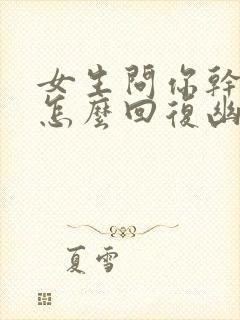 女生問你幹
怎麼回復幽
夏雪